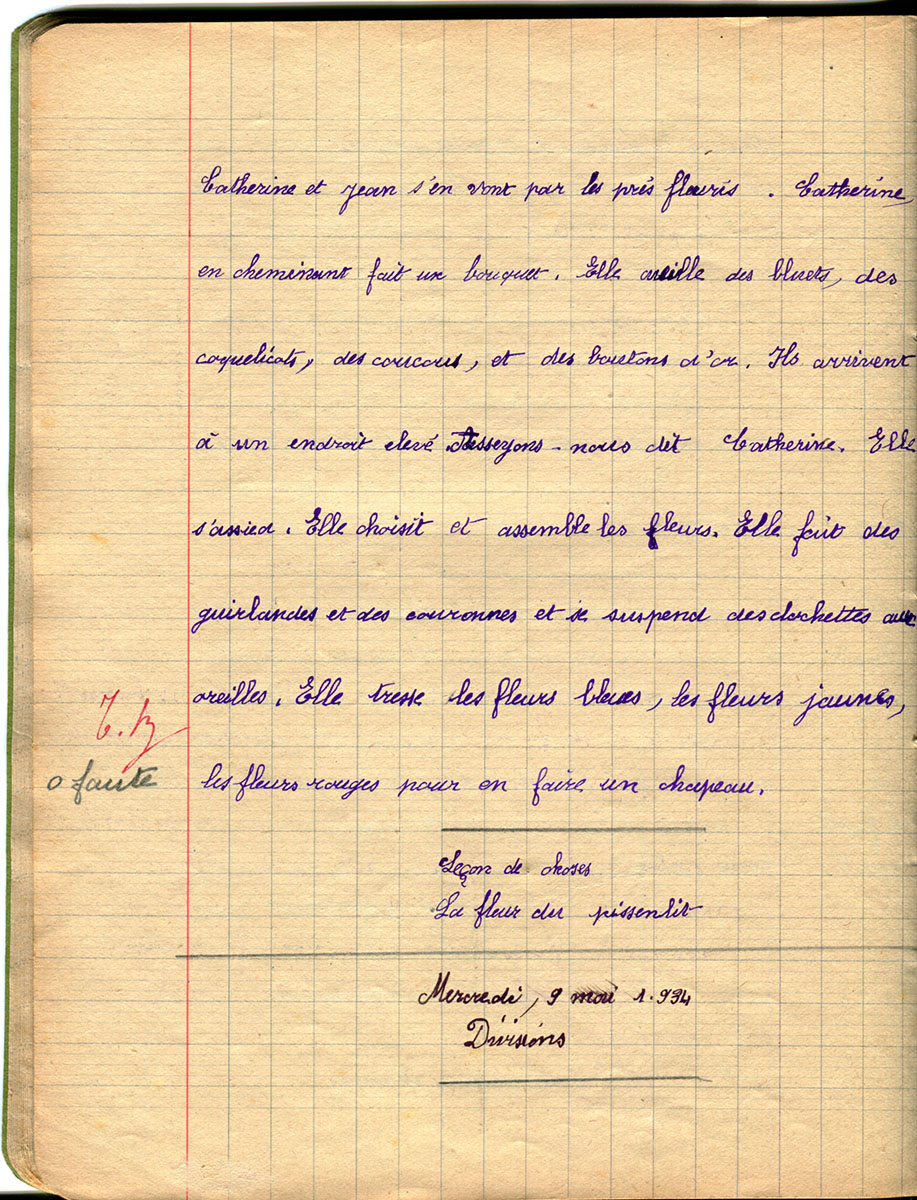 Catherine et Jean s'en vont par les prés fleuris . Catherine,
en cheminant fait un bouquet. Elle cueille des bluets, des
coquelicots, des coucous, et des boutons d'or. Ils arrivent
à un endroit elevé Asseyons-nous dit Catherine. Elle
s'assied. Elle choisit et assemble les fleurs. Elle fait des
guirlandes et des couronnes et se suspend des clochettes aux
oreilles. Elle tresse les fleurs bleues, les fleurs jaunes,
T. b
0 faute
les fleurs rouges pour en faire un chapeau.
Leçon de choses
La fleur du pissenlit
Mercredi, 9 mai 1.934
Divisions